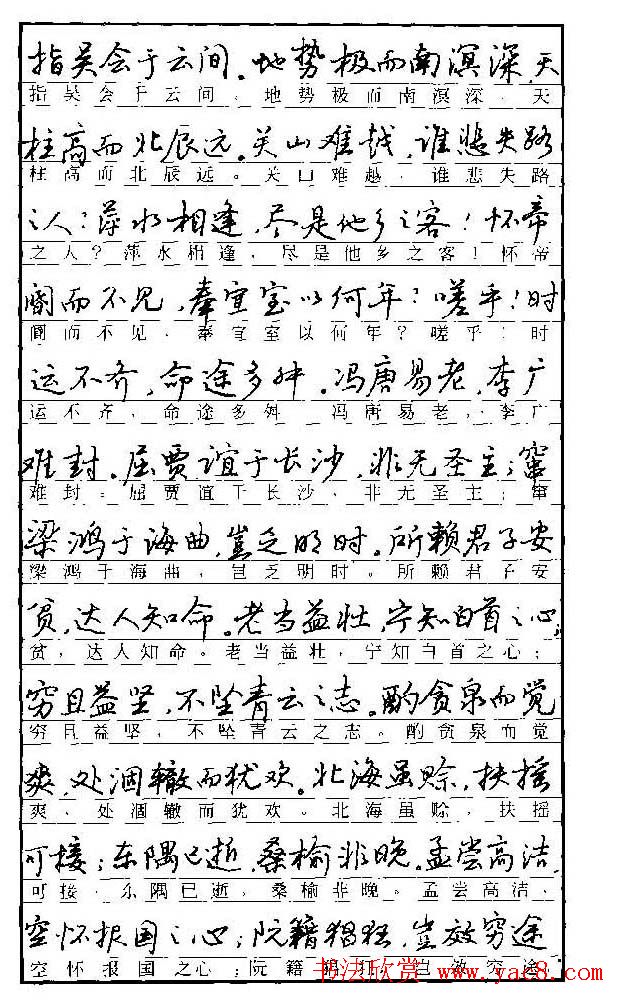 指吴会于云间。地势极而南溟深,天
指吴会于云间。地势极而南溟深,天
柱高而北辰远。关山难越,谁悲失路
柱高而北辰远。关山难越,谁悲失路
之人?萍水相逢,尽是他乡之客!怀帝
之人?萍水相逢,尽是他乡之客!怀帝
阍而不见,奉宣室以何年?嗟乎!时
阍而不见,奉宣室以何年?嗟乎!时
运不齐,命途多舛。冯唐易老,李广
运不齐,命途多舛 冯唐易老,李广
难封。屈贾谊于长沙,非无圣主;窜
难封。屈贾谊于长沙,非无圣主;窜
梁鸿于海曲,岂乏明时。所赖君子安
梁鸿于海曲,岂乏明时。所赖君子安
贫,达人知命。老当益壮,宁知白首之心;
贫,达人知命。老当益壮,宁知白首之心;
穷且益坚,不坠青云之志。酌贪泉而觉
穷且益坚,不坠青云之志。酌贪泉而觉
爽,处涸辙而犹欢。北海虽赊,扶摇
爽,处涸辙而犹欢。北海虽赊,扶摇
可接;东隅已逝,桑榆非晚。孟尝高洁,
可接,东隅已逝,桑榆非晚。孟尝高洁,
空怀报国之心;阮籍猖狂,岂效穷途
空怀报国之心;阮籍猖狂,岂效穷途
书法欣赏 www.yac8.com